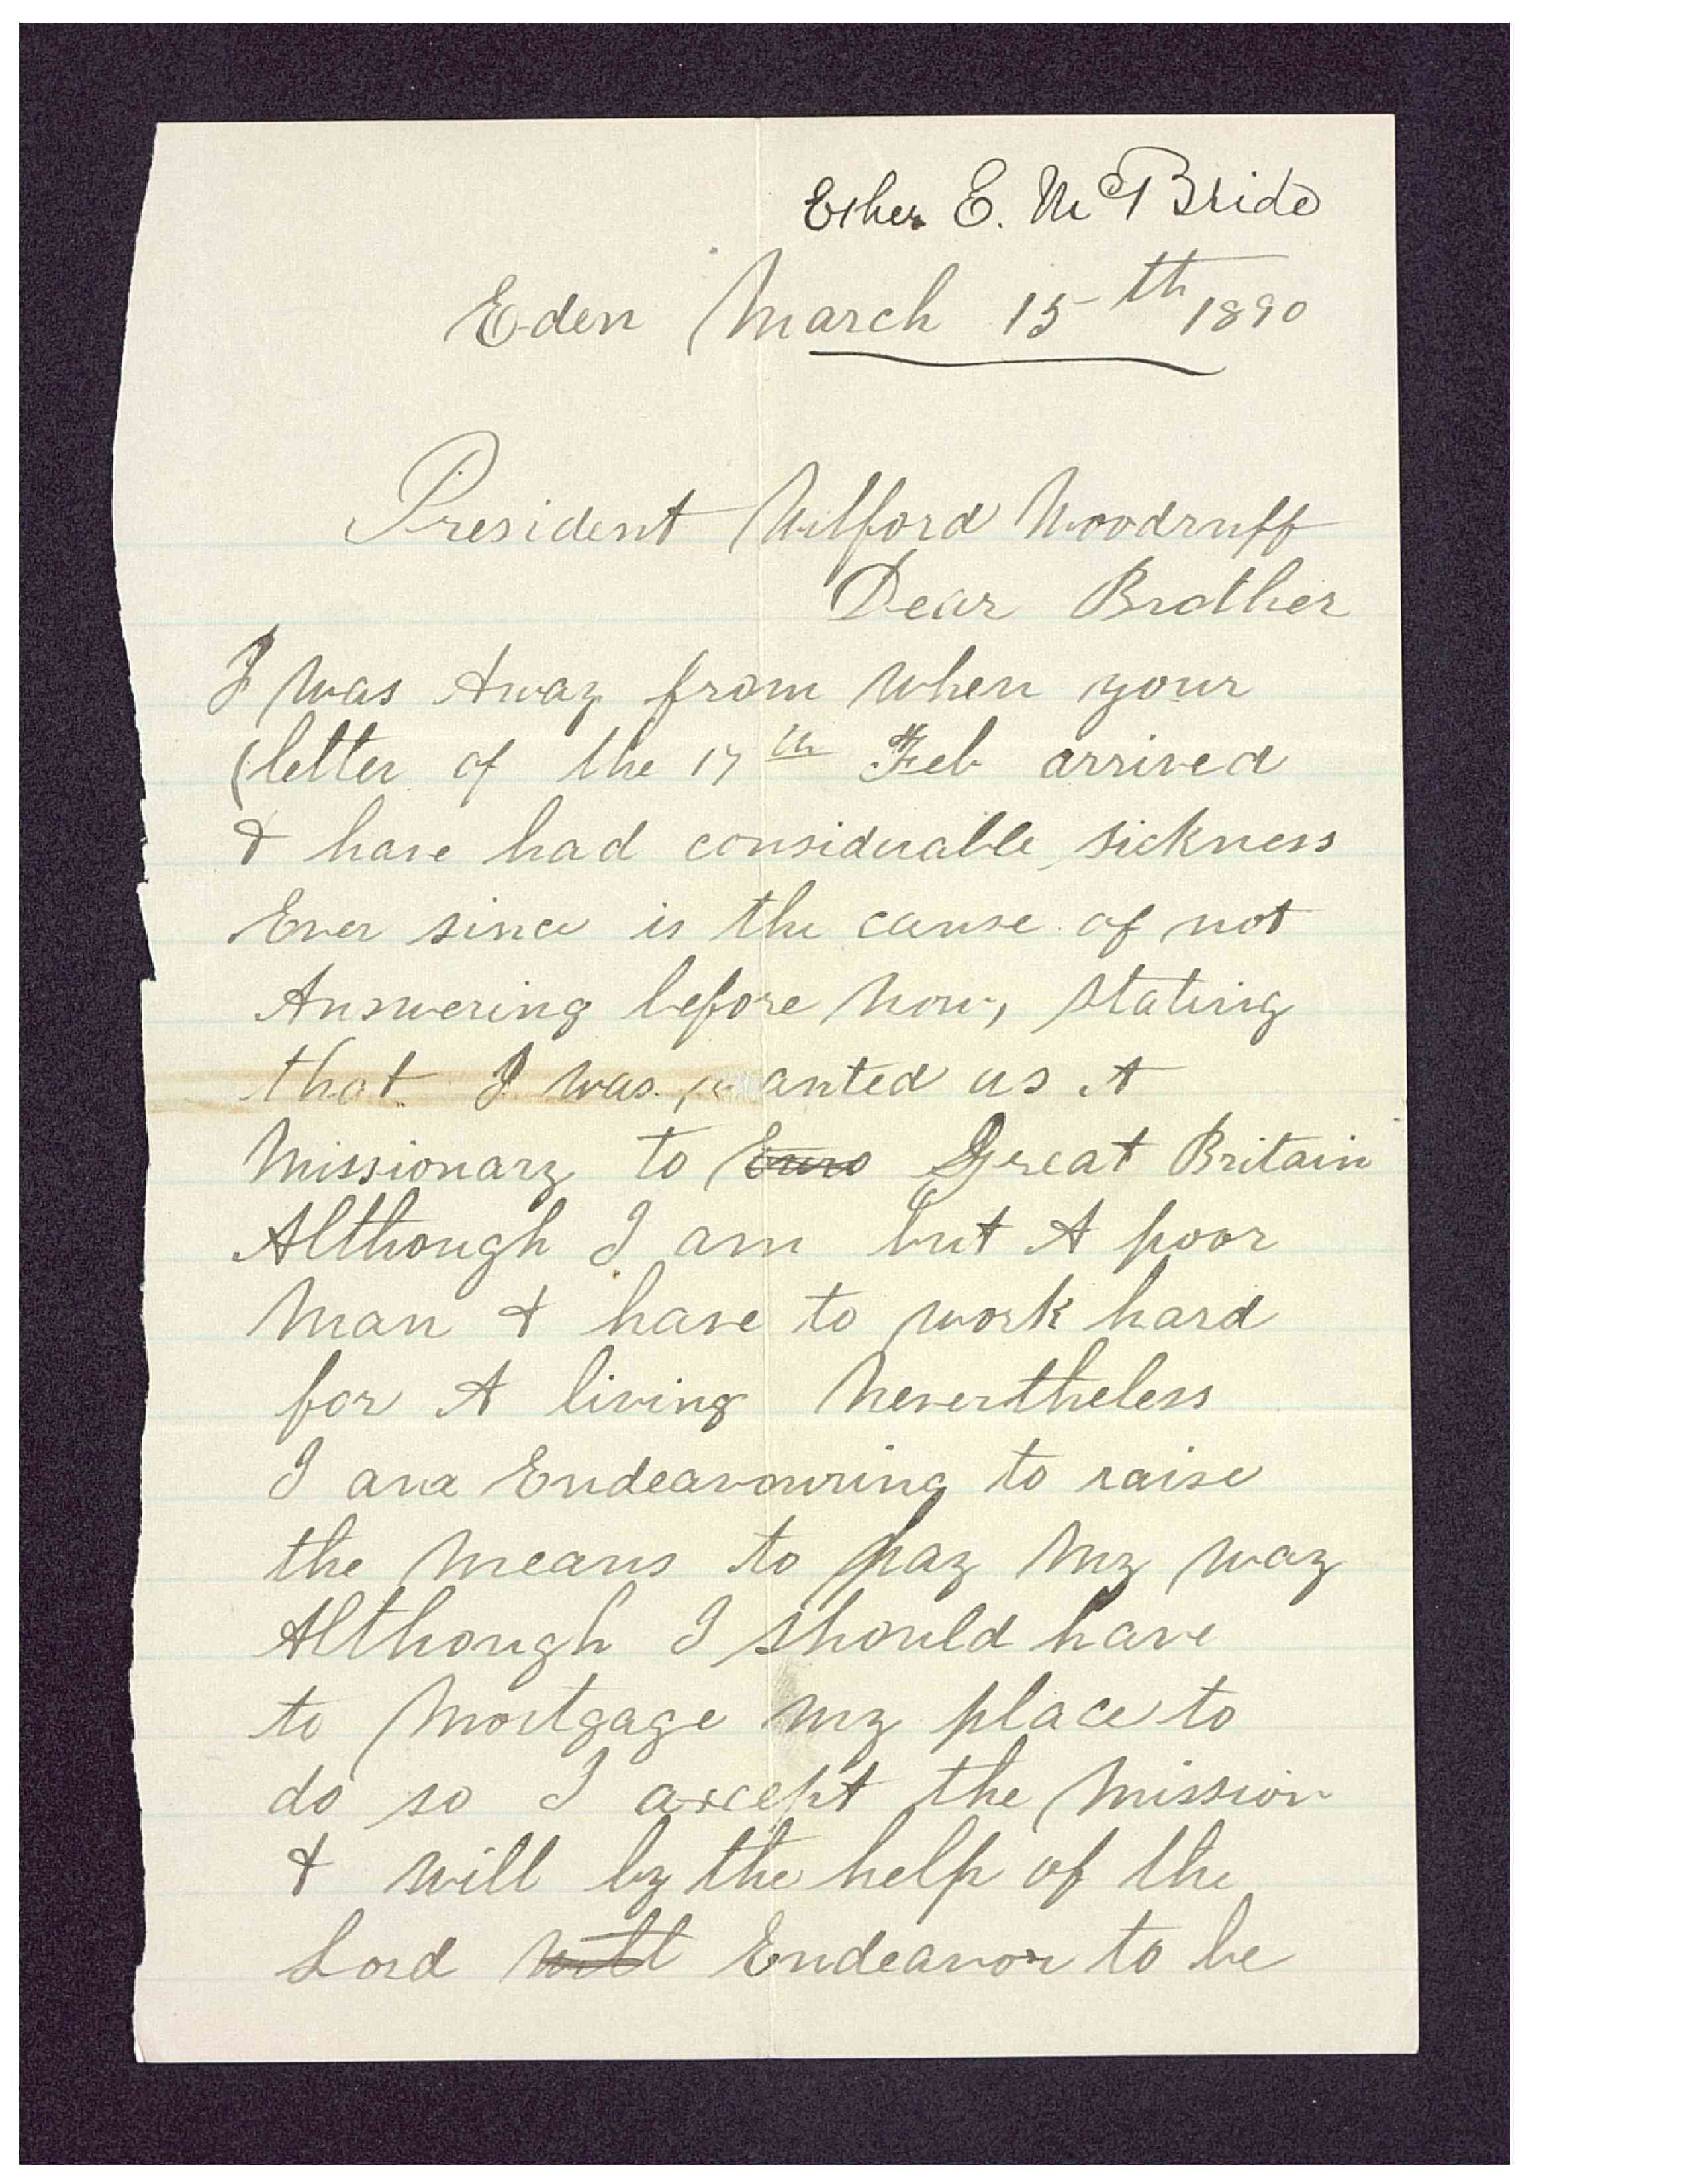 Ether E. McBride
Eden March 15th 1890
President Wilford Woodruff
Dear Brother
I was Away from when your
letter of the 17th Feb arrived
& have had considerable sickness
Ever since is the cause of not
Answering before now, stating
that I was wanted as A
Missionary to Euro Great Britain
Although I am but A poor
Man & have to work hard
for A living Nevertheless
I am Endeavouring to raise
the means to pay my way
Although I should have
to Mortgage my place to
do so I accept the Mission
& will by the help of the
Lord will Endeavor to be